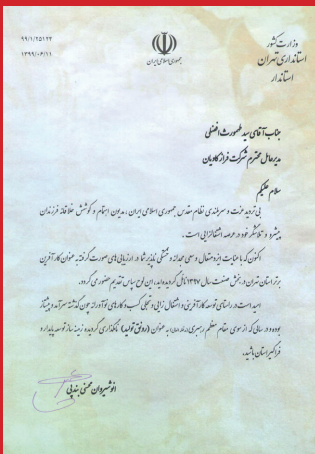 ۹۹/۱/۲۵۱۲۲
۱۳۹۹/۰۶/۱۱
جمهوری اسلامی ایران
وزارت کشور
استانداری تهران
استاندار
جناب آقای سید طهمورث افضلی
مدیرعامل محترم شرکت فراز کاویان
سلام علیکم
بی تردید عزت و سربلندی نظام مقدس جمهوری اسلامی ایران، مدیون اهتمام و کوشش خلاقانه فرزندان
پیشرو و تلاشگر خود در عرصه اشتغالزایی است.
اکنون که با عنایت ایزد متعال و سعی مجدانه و خستگی ناپذیر شما در ارزیابی های صورت گرفته بعنوان کارآفرین
برتر استان تهران در بخش صنعت سال ۱۳۹۷ نائل گردیده اید، این لوح سپاس تقدیم حضور می گردد.
امید است در راستای توسعه کارآفرینی و اشتغال زایی و تجلی کسب و کارهای نوآورانه چون گذشته سرآمد و پیشتاز
بوده و در سالی که از سوی مقام معظم رهبری به عنوان (رونق تولید) نامگذاری گردیده زمینه ساز توسعه پایدار و
فراگیر استان باشید.
انوشیروان محسنی بندپی